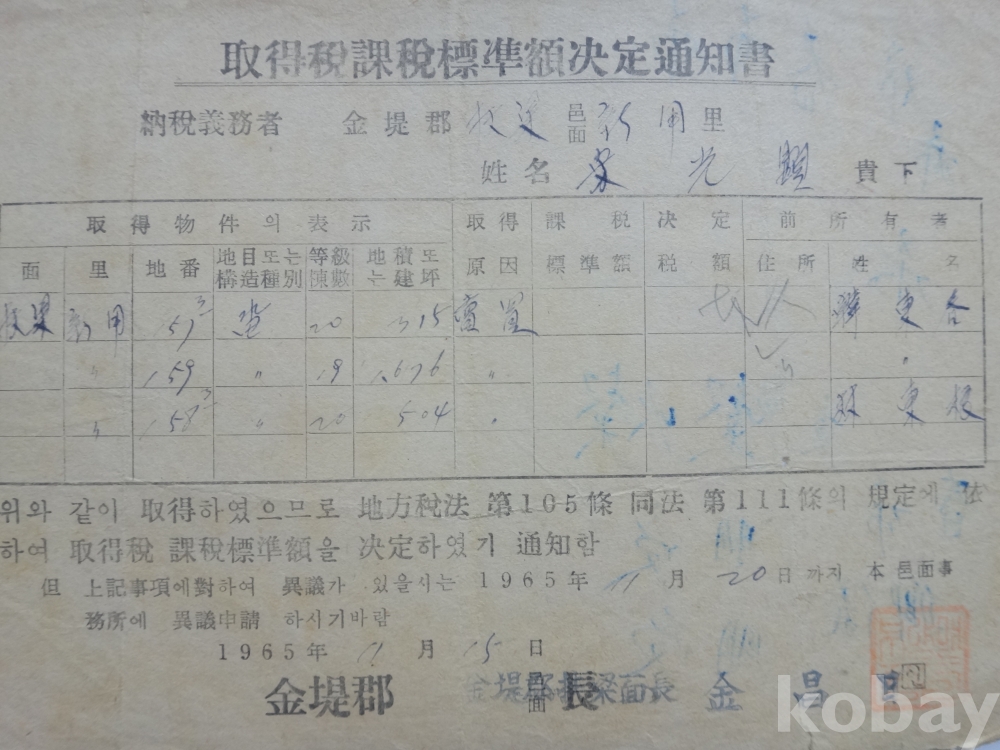 取得稅課稅標準額決定通知書
納稅義務者 金堤郡 邑面 新用里
姓名 光 顯 貴下
取得物件의表示 取得 課稅 決定 前所有者
面 里 地番 地目또는 等級 地積또 原因 標準額 稅額 住所 姓名
構造種別 棟數 는建坪
新用 畓 20 315 賣買
〃 159 〃 19 1,676 〃
〃 〃 20 504 〃
위와 같이 取得하였으므로 地方稅法 第105條 同法 第111條의 規定에 依
하여 取得稅 課稅標準額을 決定하였기 通知함
但 上記事項에對하여 異議가 있을시는 1965年 11月 20日까지 本邑面事
務所에 異議申請 하시기바람
1965年 11月 15日
金堤郡 邑面長 金堤郡 面長 金 昌
kobay